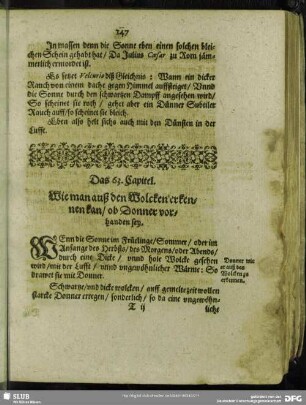 147
In massen denn die Sonne eben einen solchen blei-
chen Schein gehabt hat/ Da Julius Cæsar zu Rom jäm-
merlich ermordet ist.
Es setzet Velcurio diß Gleichnis: Wann ein dicker
Rauch von einem dache gegen Himmel auffsteiget/ Vnnd
die Sonne durch den schwartzen Dampff angesehen wird/
So scheinet sie roth/ gehet aber ein Dünner Subtiler
Rauch auff/ so scheinet sie bleich.
Eben also helt sichs auch mit den Dünsten in der
Lufft.
Das 63. Capitel.
Wie man auß den Wolcken erken-
nen kan/ ob Donner vor-
handen sey.
WEnn die Sonne im Früelinge/ Sommer/ oder im
Anfange des Herbsts/ des Morgens/ oder Abends/
durch eine Dicke/ vnnd hole Wolcke gesehen
wird/ mit der Lufft vnnd vngewöhnlicher Wärme: So
drawet sie mit Donner.
Donner wie
er auß den
Wolcken zu
erkennen.
Schwartze/ vnd dicke wolcken/ auff gemelte zeit wollen
starcke Donner erregen/ sonderlich/ so da eine vngewöhn-
T ij
liche
SLUB
DFG